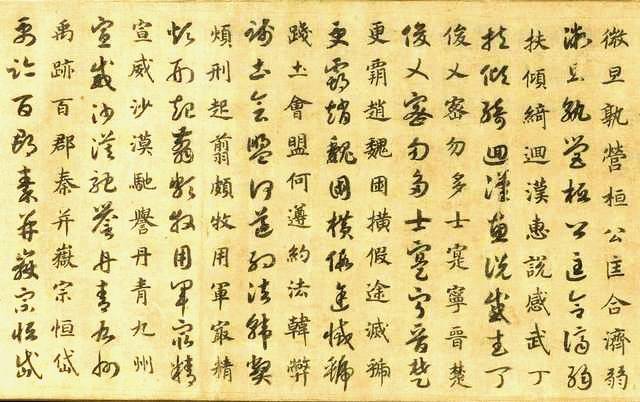 微旦孰營桓公匡合濟弱
微旦孰營桓公匡合濟弱
扶傾綺迴漢惠說感武丁
扶傾綺迴漢惠說感武丁
俊乂密勿多士寔寧晉楚
俊乂密勿多士寔寧晉楚
更霸趙魏困橫假途滅虢
更霸趙魏困橫假途滅虢
踐土會盟何遵約法韓弊
踐土會盟何遵約法韓弊
煩刑起翦頗牧用軍冣精
煩刑起翦頗牧用軍冣精
宣威沙漠馳譽丹青九州
宣威沙漠馳譽丹青九州
禹跡百郡秦并嶽宗恒岱
禹跡百郡秦并嶽宗恒岱